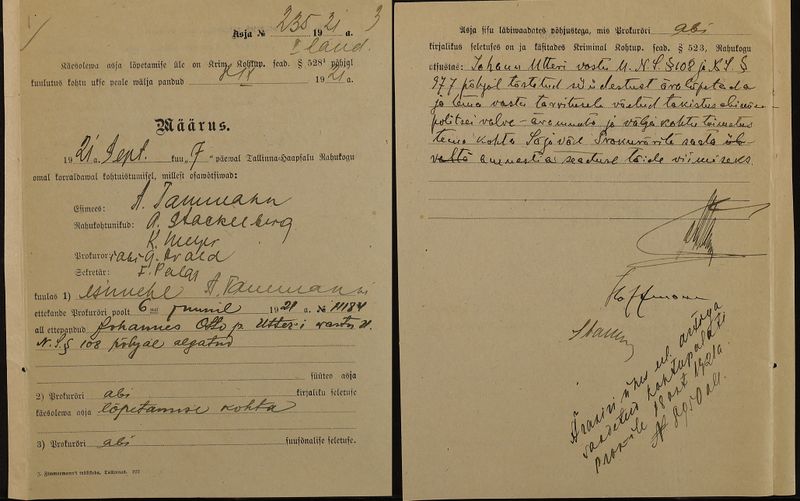 Asja № 235 21 19 a. 3
I laud.
Käesolewa asja lõpetamise üle on Krim. Kohtup. sead. § 528¹ põhjal
kuulutus kohtu ukse peale wälja pandud 1921 a.
Määrus.
1921 a. Sept. kuu „7" päewal Tallinna-Haapsalu Rahukogu
omal korraldawal kohtuistumisel, millest osawõtsiwad:
Esimees: A. Tammann
Rahukohtunikud: A. Stackelberg
K. Meyer
Prokurör: abi
Sekretär:
kuulas 1) esimehe A. Tammann'i
ettekande Prokuröri poolt 6 juunil 1921 a. № 11184
all ettepandud Johannes Otto p. Utter'i vastu U.
N. S. § 108 põhjal algatud
süütes asja
2) Prokuröri abi kirjaliku seletuse
käesolewa asja lõpetamise kohta
3) Prokuröri abi suusõnalise seletuse.
J. Zimmermann'i trükikoda, Tallinnas.
Asja sisu läbiwaadates põhjustega, mis Prokuröri abi
kirjalikus seletuses on ja käsitades Kriminal Kohtup. sead. § 523, Rahukogu
otsustas: Johann Utteri vastu U. N. S. § 108 ja K. S. §
977 põhjal tõstetud süüdistust ära lõpetada
ja tema vastu tarvitusele võetud
politsei valve - ära muuta ja välja kohtu toimetus
tema kohta Sõjaväe Prokurörile saata
amnestia seaduse täide viimiseks.
Hoffmann
Ärakiri ühes ul. aktiga
saadetud kohtupalati
prok-ile 18 okt 1921 a
№ 8950 all.